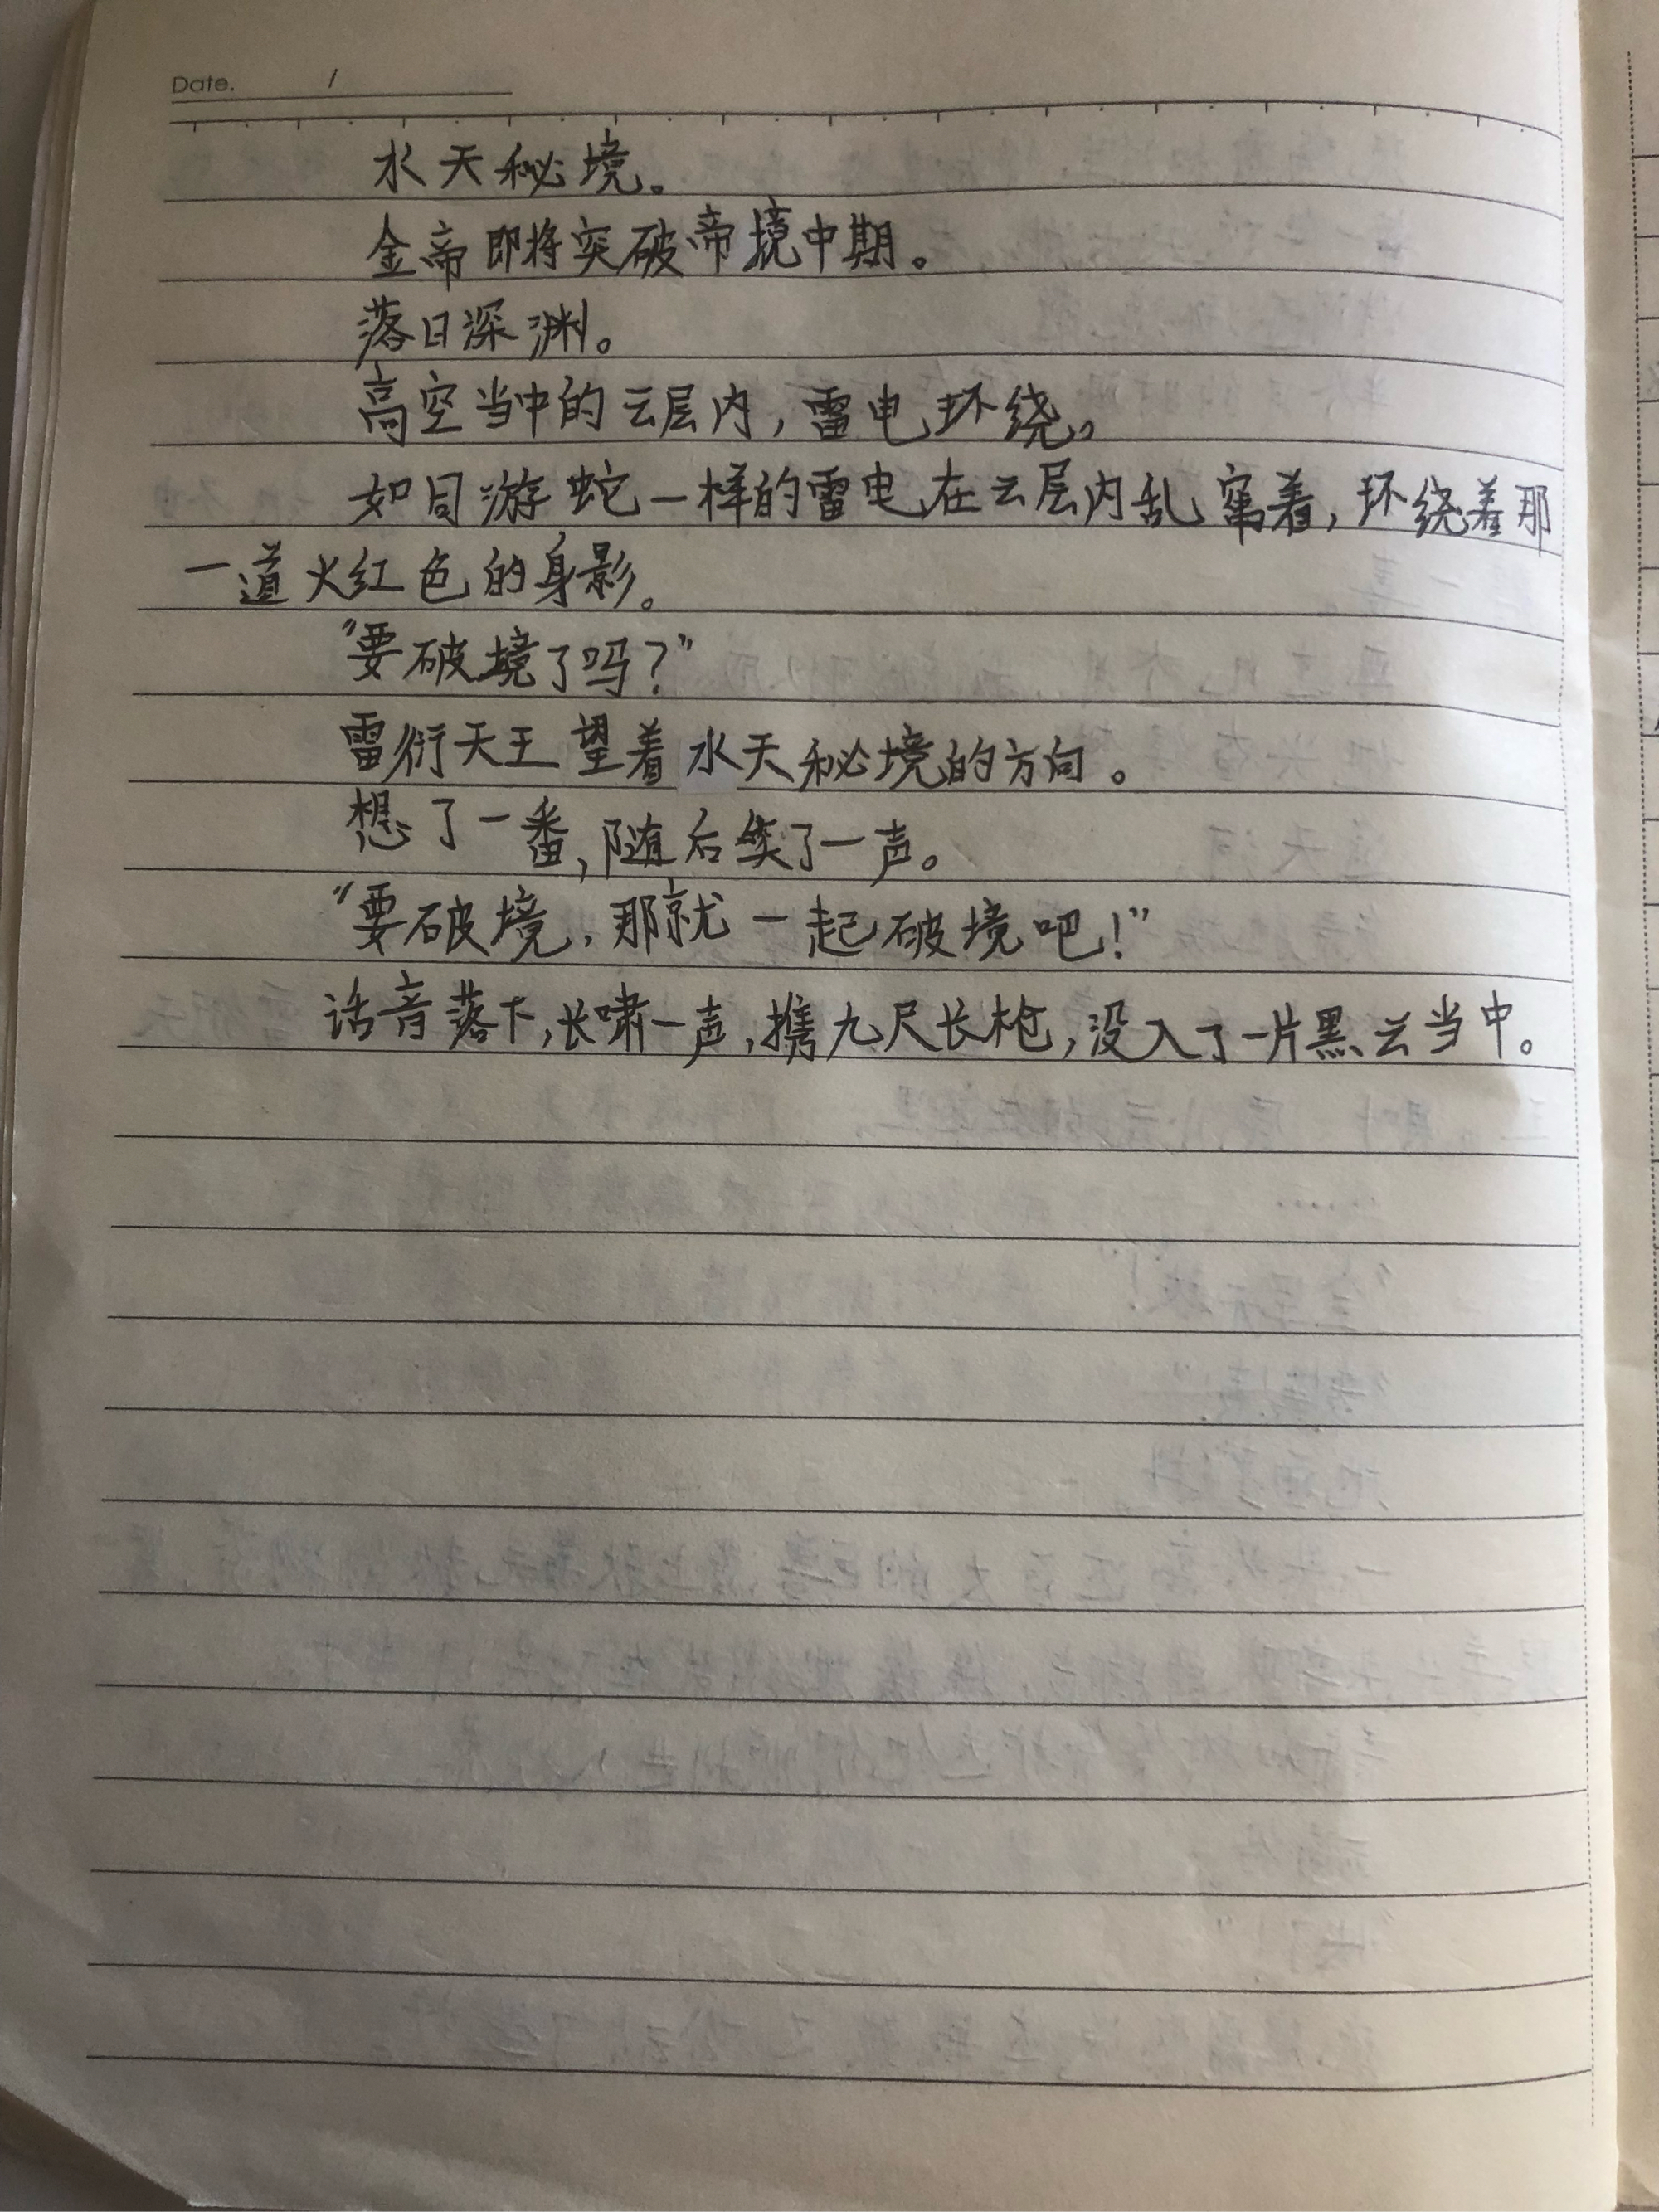 Date. /
水天秘境。
金帝即将突破帝境中期。
落日深渊。
高空当中的云层内，雷电环绕。
如同游蛇一样的雷电在云层内乱窜着，环绕着那
一道火红色的身影。
“要破境了吗？”
雷衍天王望着水天秘境的方向。
想了一番，随后笑了一声。
“要破境，那就一起破境吧！”
话音落下，长啸一声，携九尺长枪，没入了一片黑云当中。